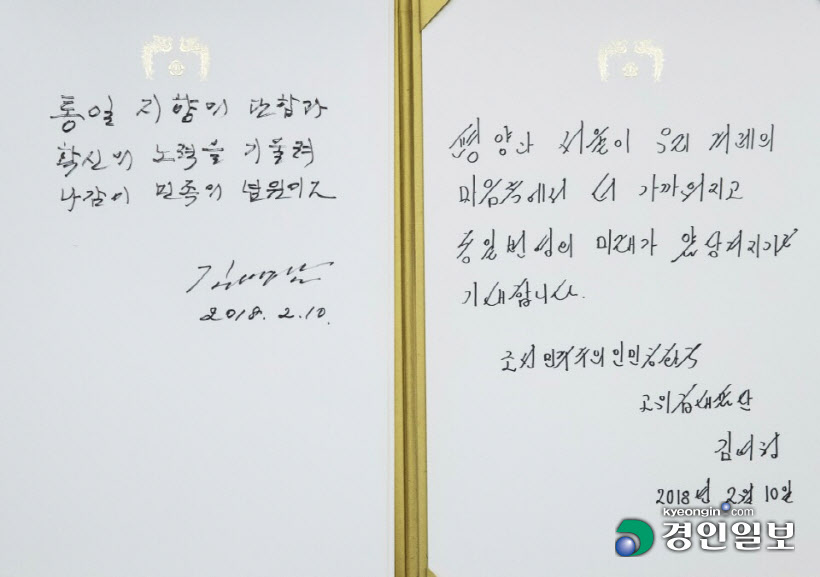 통일 지향의 단합과
확신의 노력을 기울려
나감이 민족의 념원이오
김영남
2018. 2. 10.
평양과 서울이 우리 겨레의
마음속에서 더 가까워지고
통일번영의 미래가 앞당겨지기를
기대합니다.
조선민주주의인민공화국
고위급대표단
김여정
2018년 2월 10일
kyeongin.com
경인일보